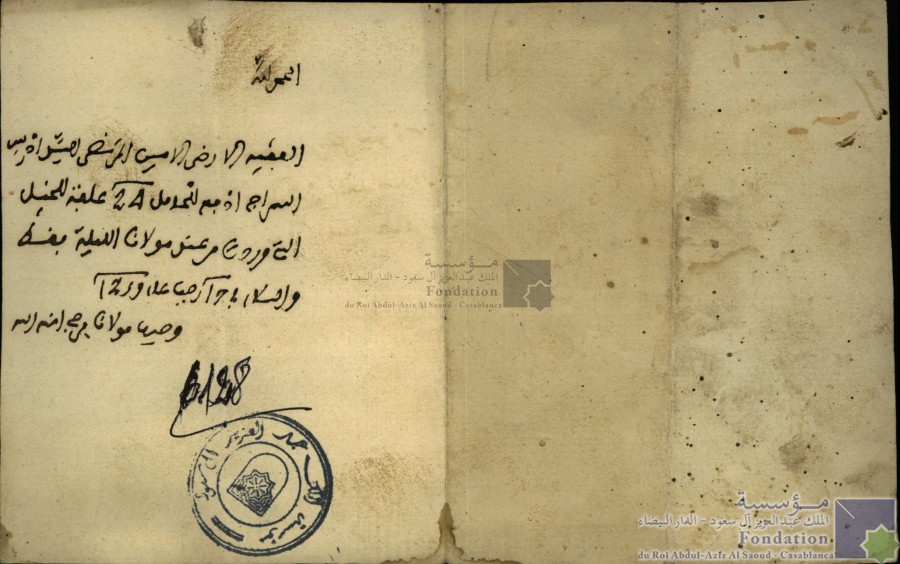 الحمد لله
الفقيه الارضى الامين المرتضى السيد ادريس
السراج ادفع للحامل 24 علفة للخيل
التي وردت من عند مولانا الليلة بفسا
والسلام في رجب عام
وصيف مولانا امنه الله
مؤسسة
الملك عبد العزيز آل سعود - الدار البيضاء
Fondation
du Roi Abdul-Aziz Al Saoud - Casablanca
مؤسسة الملك عبد العزيز آل سعود
مؤسسة
الملك عبد العزيز آل سعود - الدار البيضاء
Fondation
du Roi Abdul-Aziz Al Saoud - Casablanca